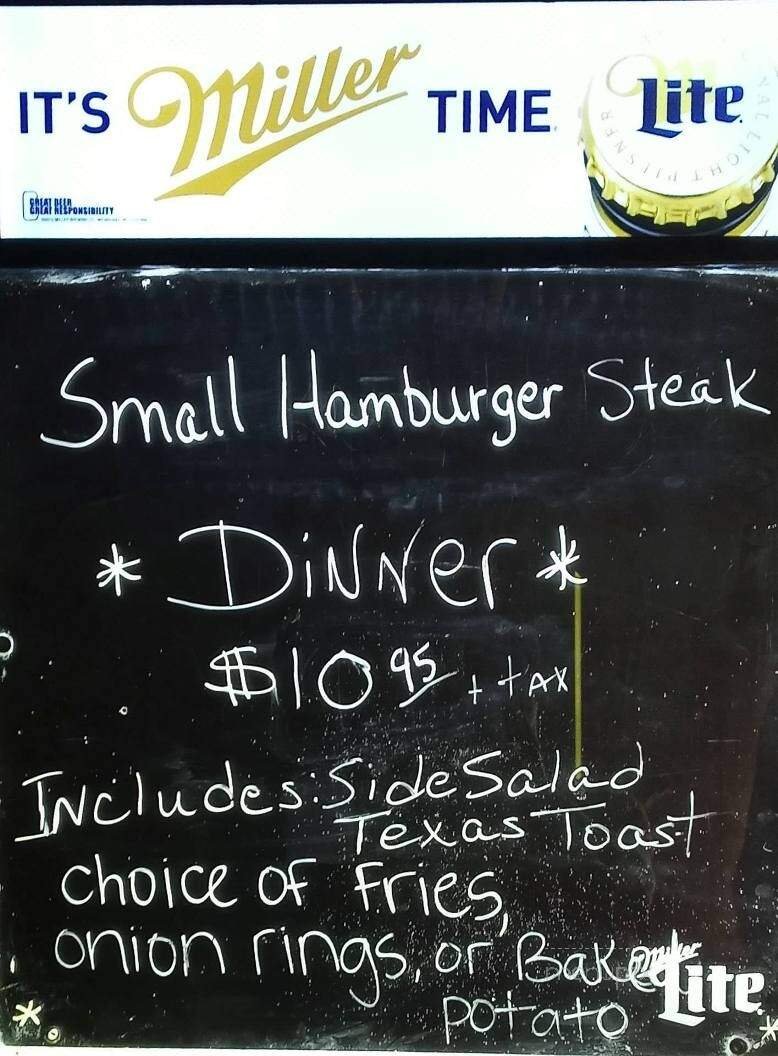 IT'S Miller TIME Lite
GREAT BEER
GREAT RESPONSIBILITY
LIGHT PILSNER
Small Hamburger Steak
* DiNNer *
$10 95 + tAX
INcludes: Side Salad
Texas Toast
choice of fries,
onion rings, or Baked
potato
Miller
Lite